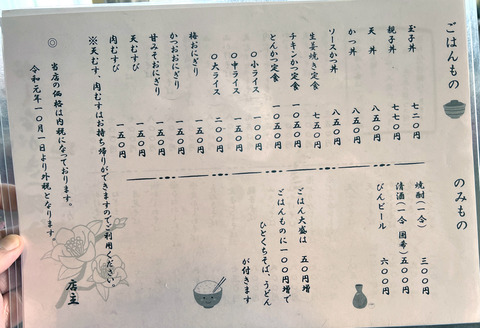 ごはんもの
玉子丼 七二〇円
親子丼 七七〇円
天丼 八五〇円
かつ丼 八五〇円
ソースかつ丼 八五〇円
生姜焼き定食 七五〇円
チキンかつ定食 一〇五〇円
とんかつ定食 一〇五〇円
〇小ライス 一〇〇円
〇中ライス 一五〇円
〇大ライス 二〇〇円
梅おにぎり 一五〇円
かつおおにぎり 一五〇円
甘みそおにぎり 一五〇円
天むすび 一五〇円
肉むすび 一五〇円
※天むす、肉むすはお持ち帰りができますのでご利用ください。
◎ 当店の価格は内税になっております。
令和元年一〇月一日より外税となります。
店主
のみもの
焼酎(一合) 三〇〇円
清酒(一合 国香) 五〇〇円
びんビール 六〇〇円
ごはん大盛は 五〇円増
ごはんものに一〇〇円増で
ひとくちそば、うどん
が付きます